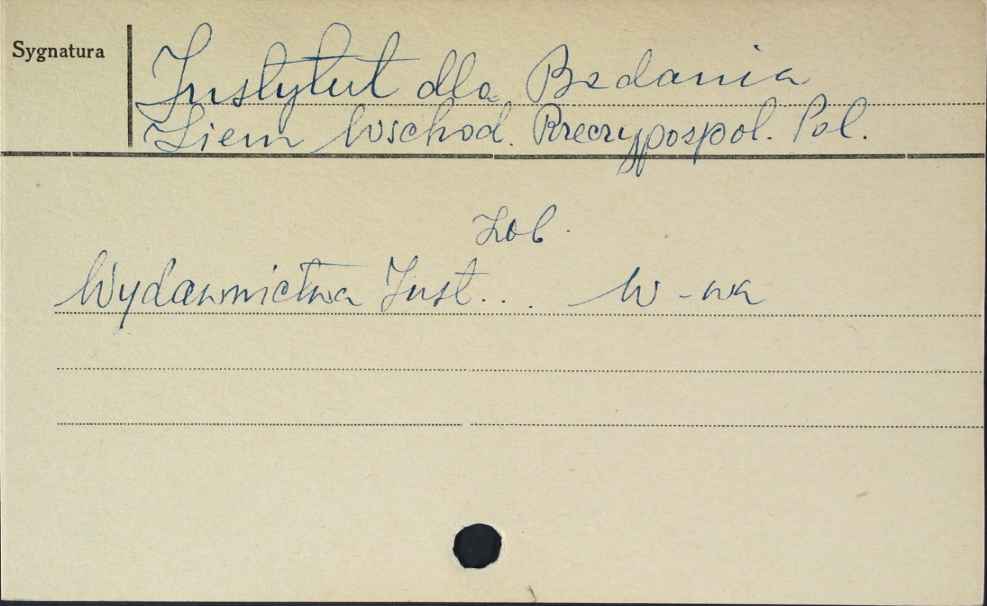 Sygnatura
Instytut dla Badania
Ziem Wschod. Rzeczypospol. Pol.
Zob.
Wydawnictwa Inst... W-wa